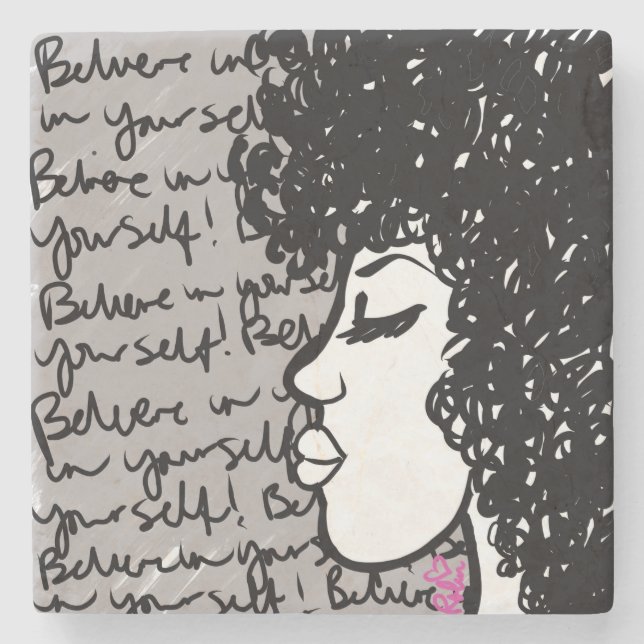 Believe in
in yoursel
Believe in
yourself! B
Believe in yourse
yourself! Bel
Believe in
in yourself
yourself! Be
Believe in yours
in yourself! Believe